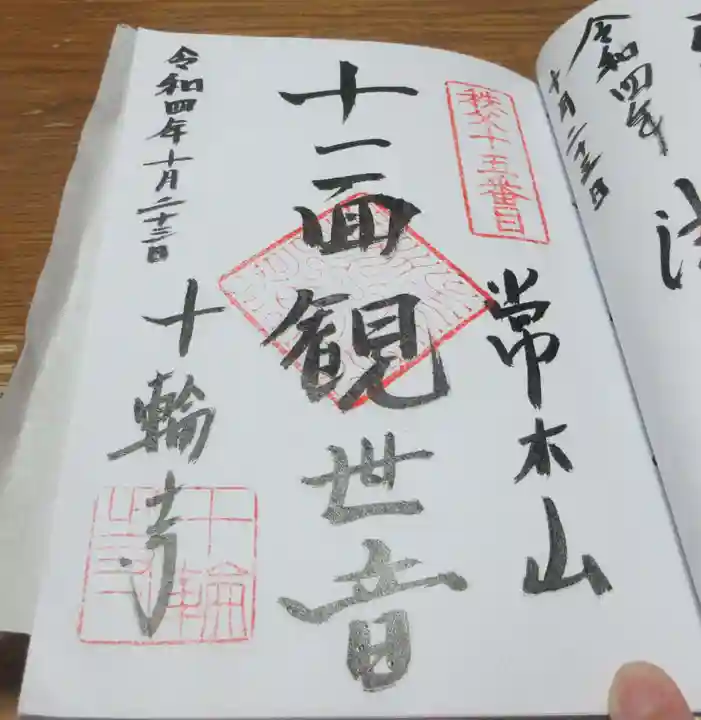 令和四年
十月二十三日
秩父十五番目
常木山
十一面観世音
令和四年十月二十三日
十輪寺
十輪
寺